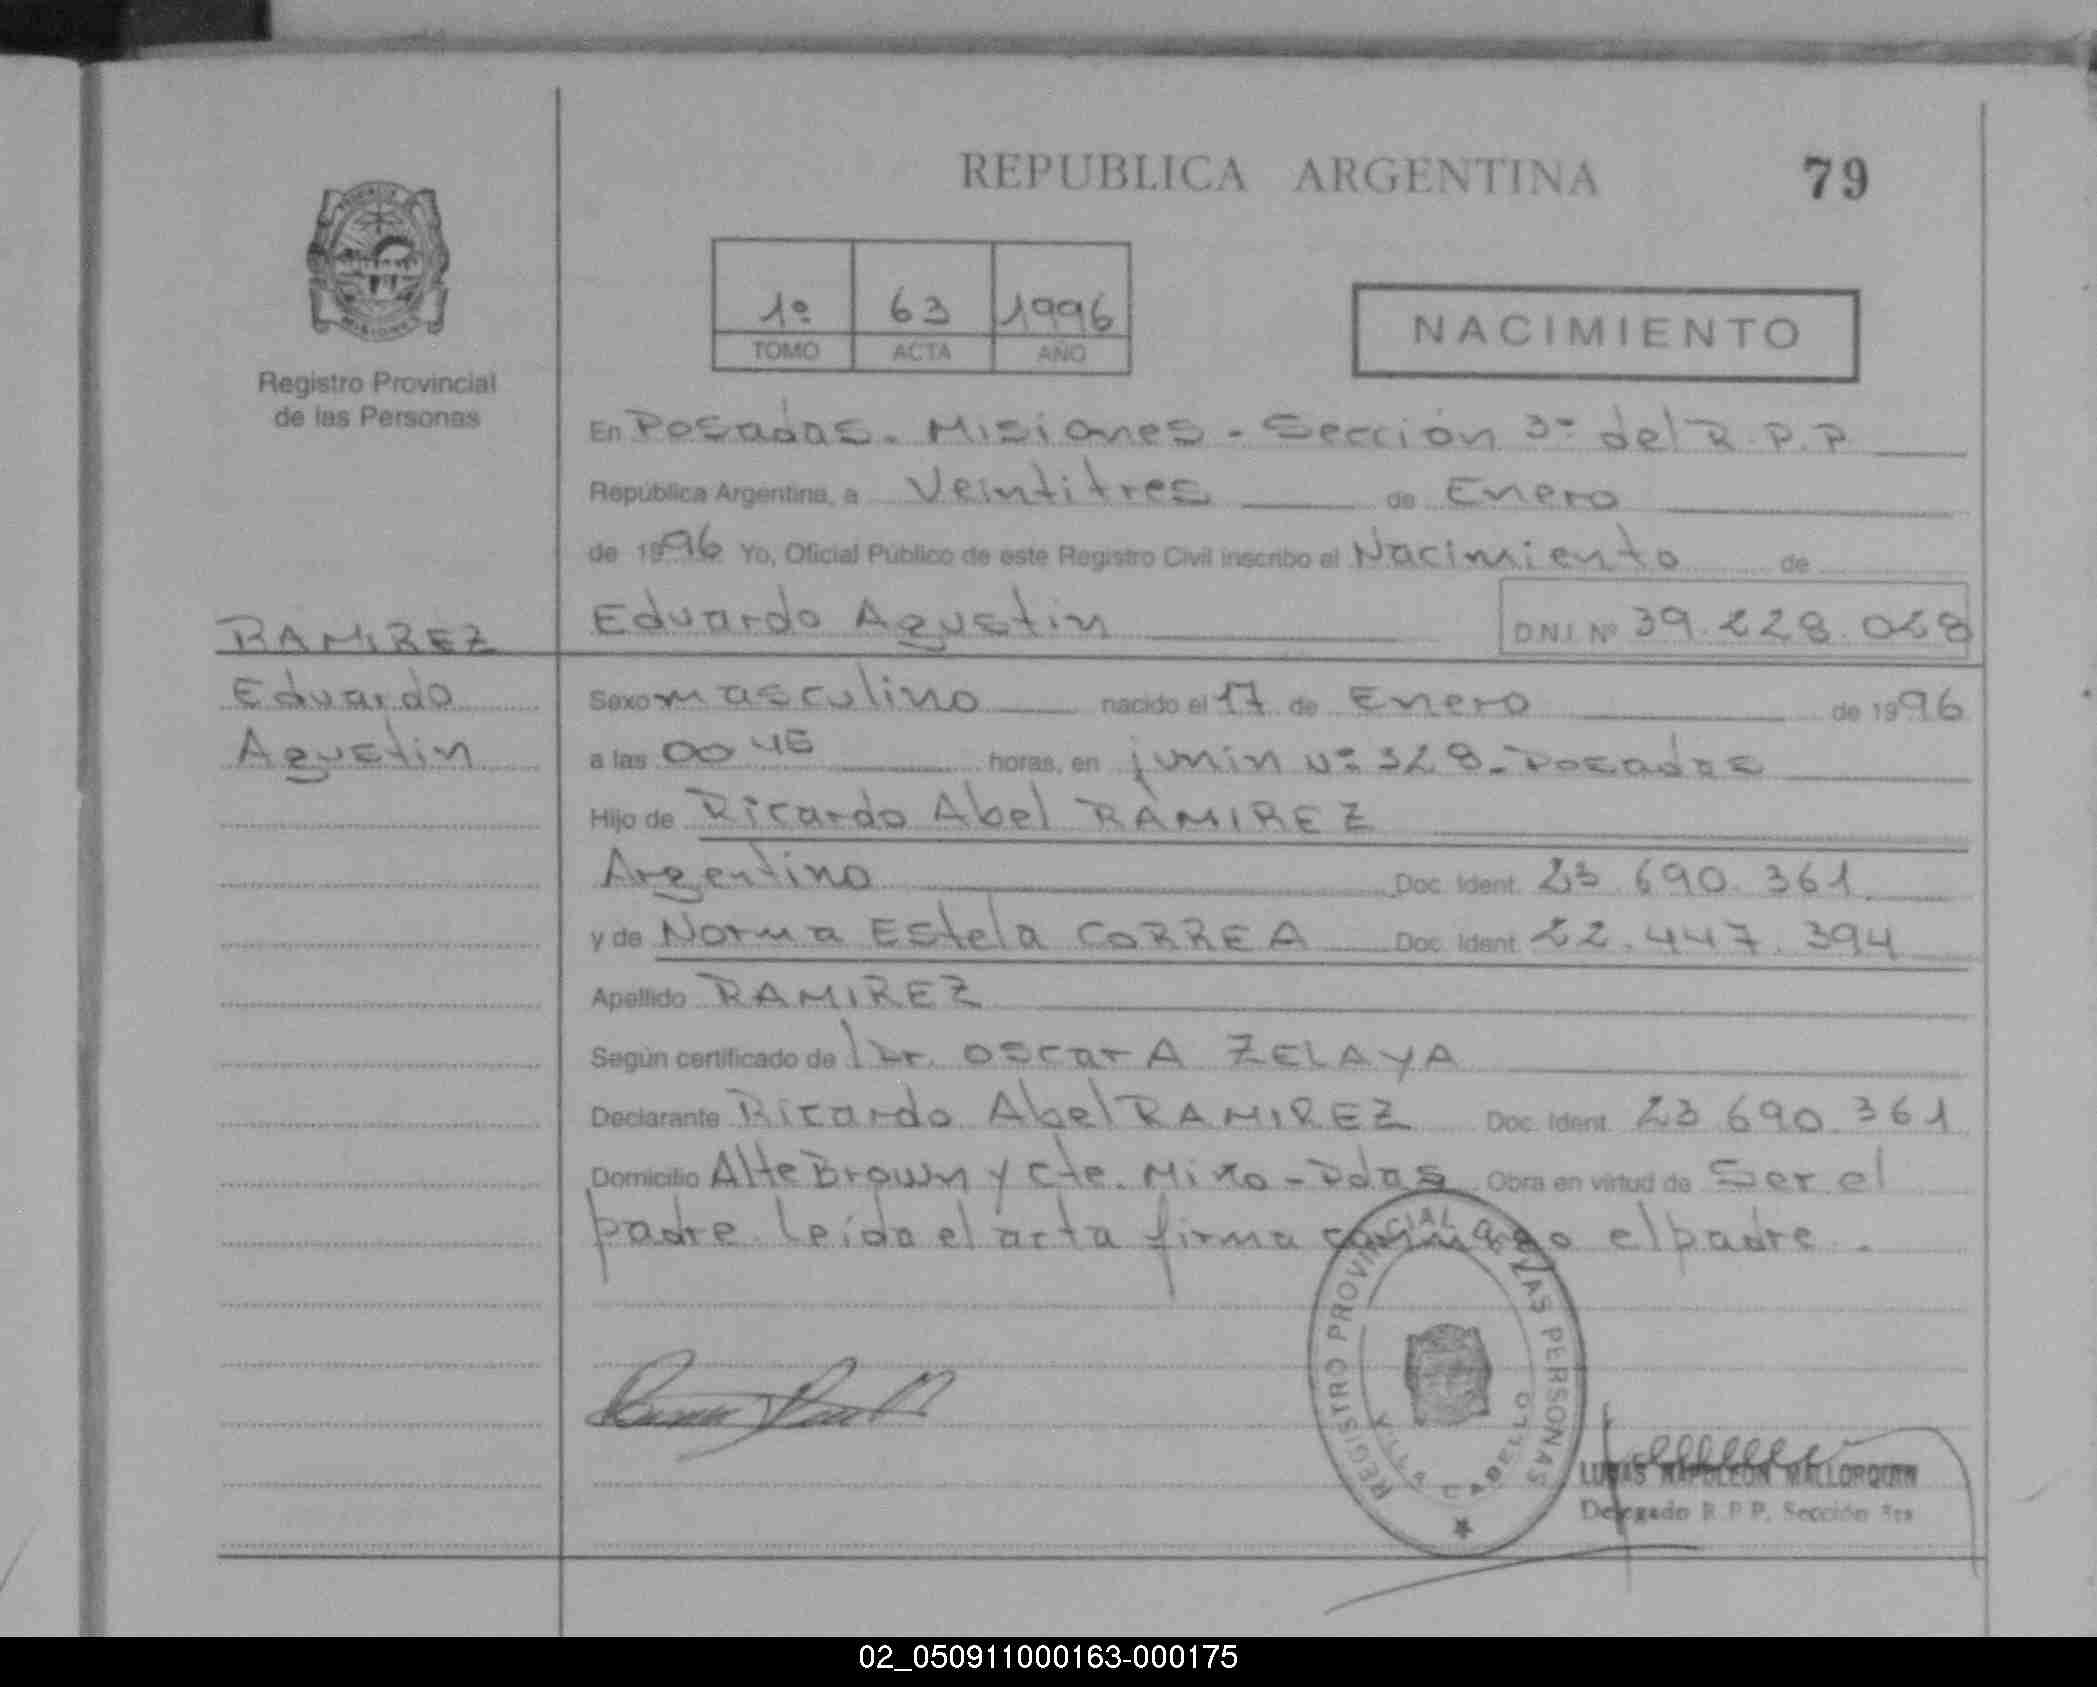 REPUBLICA ARGENTINA
79
1º 63 1996
TOMO ACTA AÑO
NACIMIENTO
MISIONES
Registro Provincial
de las Personas
En Posadas. Misiones - Sección 3º del R.P.P
República Argentina, a Veintitres de Enero
de 1996 Yo, Oficial Público de este Registro Civil inscribo el Nacimiento de
Eduardo Agustin D.N.I. Nº 39.228.028
RAMIREZ
Eduardo
Agustin
Sexo masculino nacido el 17 de Enero de 1996
a las 00 45 horas, en junin Nº 328 - Posadas
Hijo de Ricardo Abel RAMIREZ
Argentino Doc. Ident. 23.690.361
y de Norma Estela CORREA Doc. Ident. 22.447.394
Apellido RAMIREZ
Según certificado de Dr. Oscar A ZELAYA
Declarante Ricardo Abel RAMIREZ Doc. Ident. 23.690.361
Domicilio Alte Brown y Cte. Miño - Pdas Obra en virtud de Ser el
padre. Leída el acta firma conmigo el padre.
REGISTRO PROVINCIAL DE LAS PERSONAS
VILLA CABELLO
LUCAS NAPOLEON MALLORQUIN
Delegado R.P.P. Sección 3ra
02_050911000163-000175